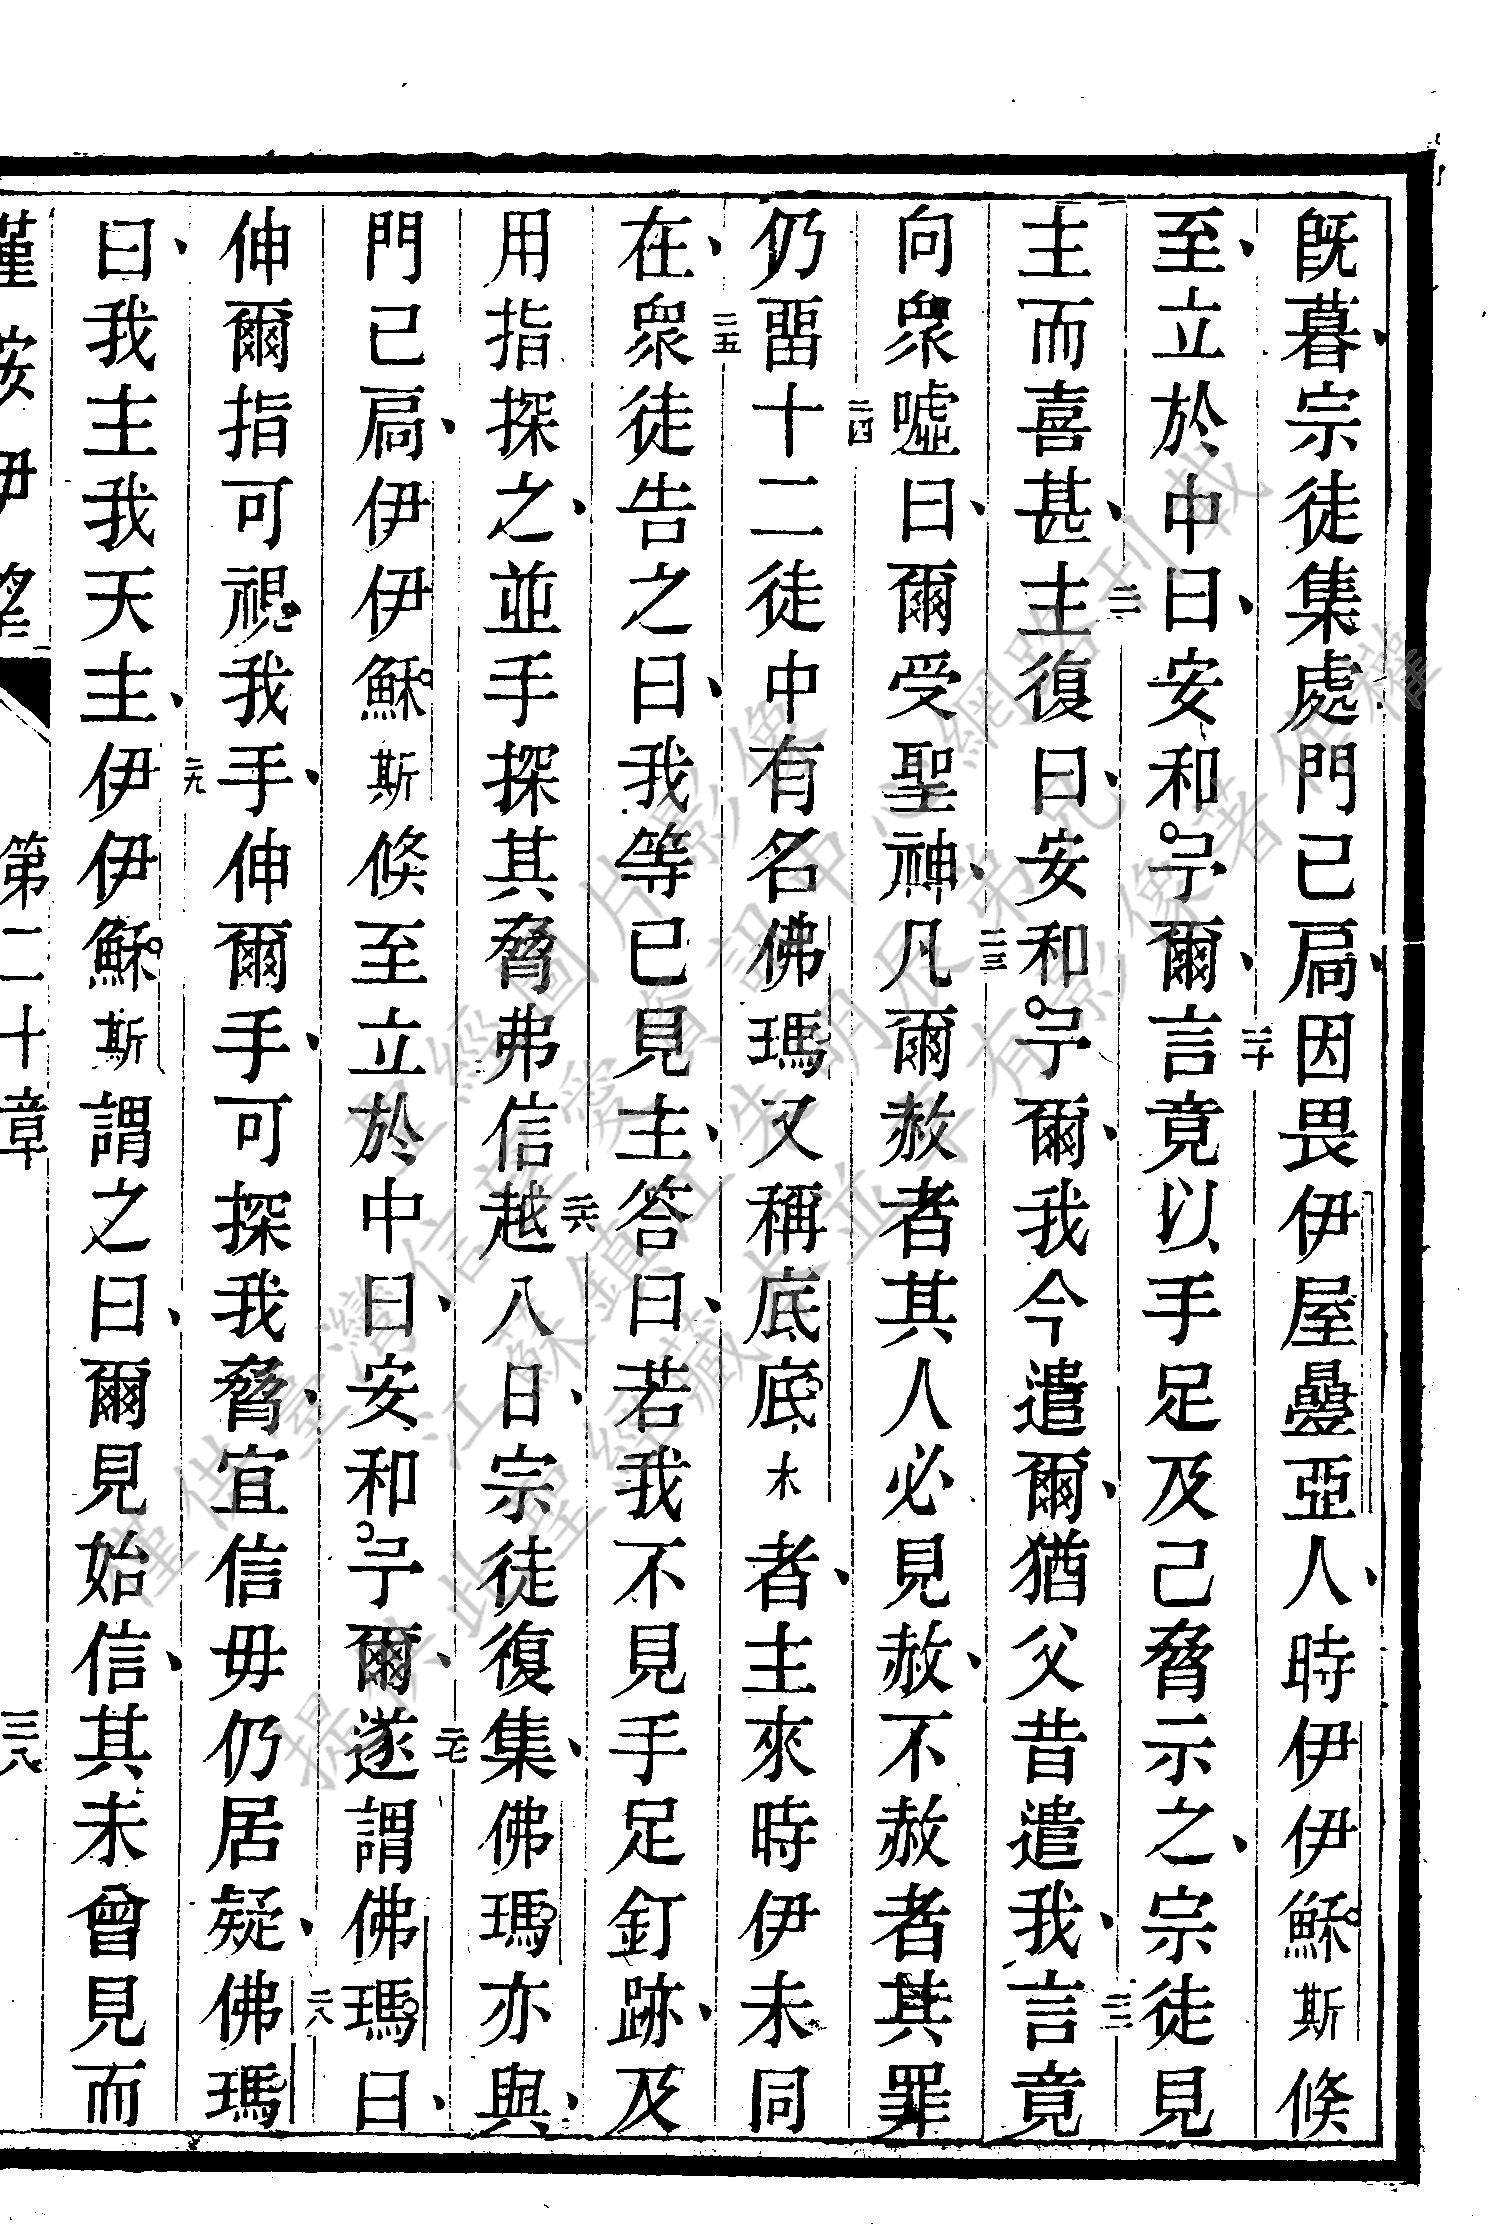 旣暮、宗徒集處門已扃、因畏伊屋疊亞人、時伊伊穌斯倏
至、立於中曰、安和予爾、二十言竟以手足及己脅示之、宗徒見
主而喜甚、二一主復曰、安和予爾、我今遣爾、猶父昔遣我、二二言竟
向衆噓曰、爾受聖神、二三凡爾赦者其人必見赦、不赦者其罪
仍畱、二四十二徒中有名佛瑪又稱底底木者、主來時伊未同
在、二五衆徒告之曰、我等已見主、答曰、若我不見手足釘跡、及
用指探之、並手探其脅弗信、二六越八日、宗徒復集、佛瑪亦與、
門已扃、伊伊穌斯倏至立於中曰、安和予爾、二七遂謂佛瑪曰、
伸爾指可視我手、伸爾手、可探我脅、宜信毋仍居疑、二八佛瑪
曰、我主我天主、二九伊伊穌斯謂之曰、爾見始信、其未曾見而
第二十章
三八